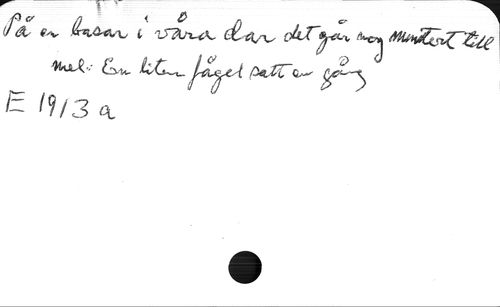 På en basar i våra dar det går nog muntert till
mel: En liten fågel satt en gång
E 1913 a